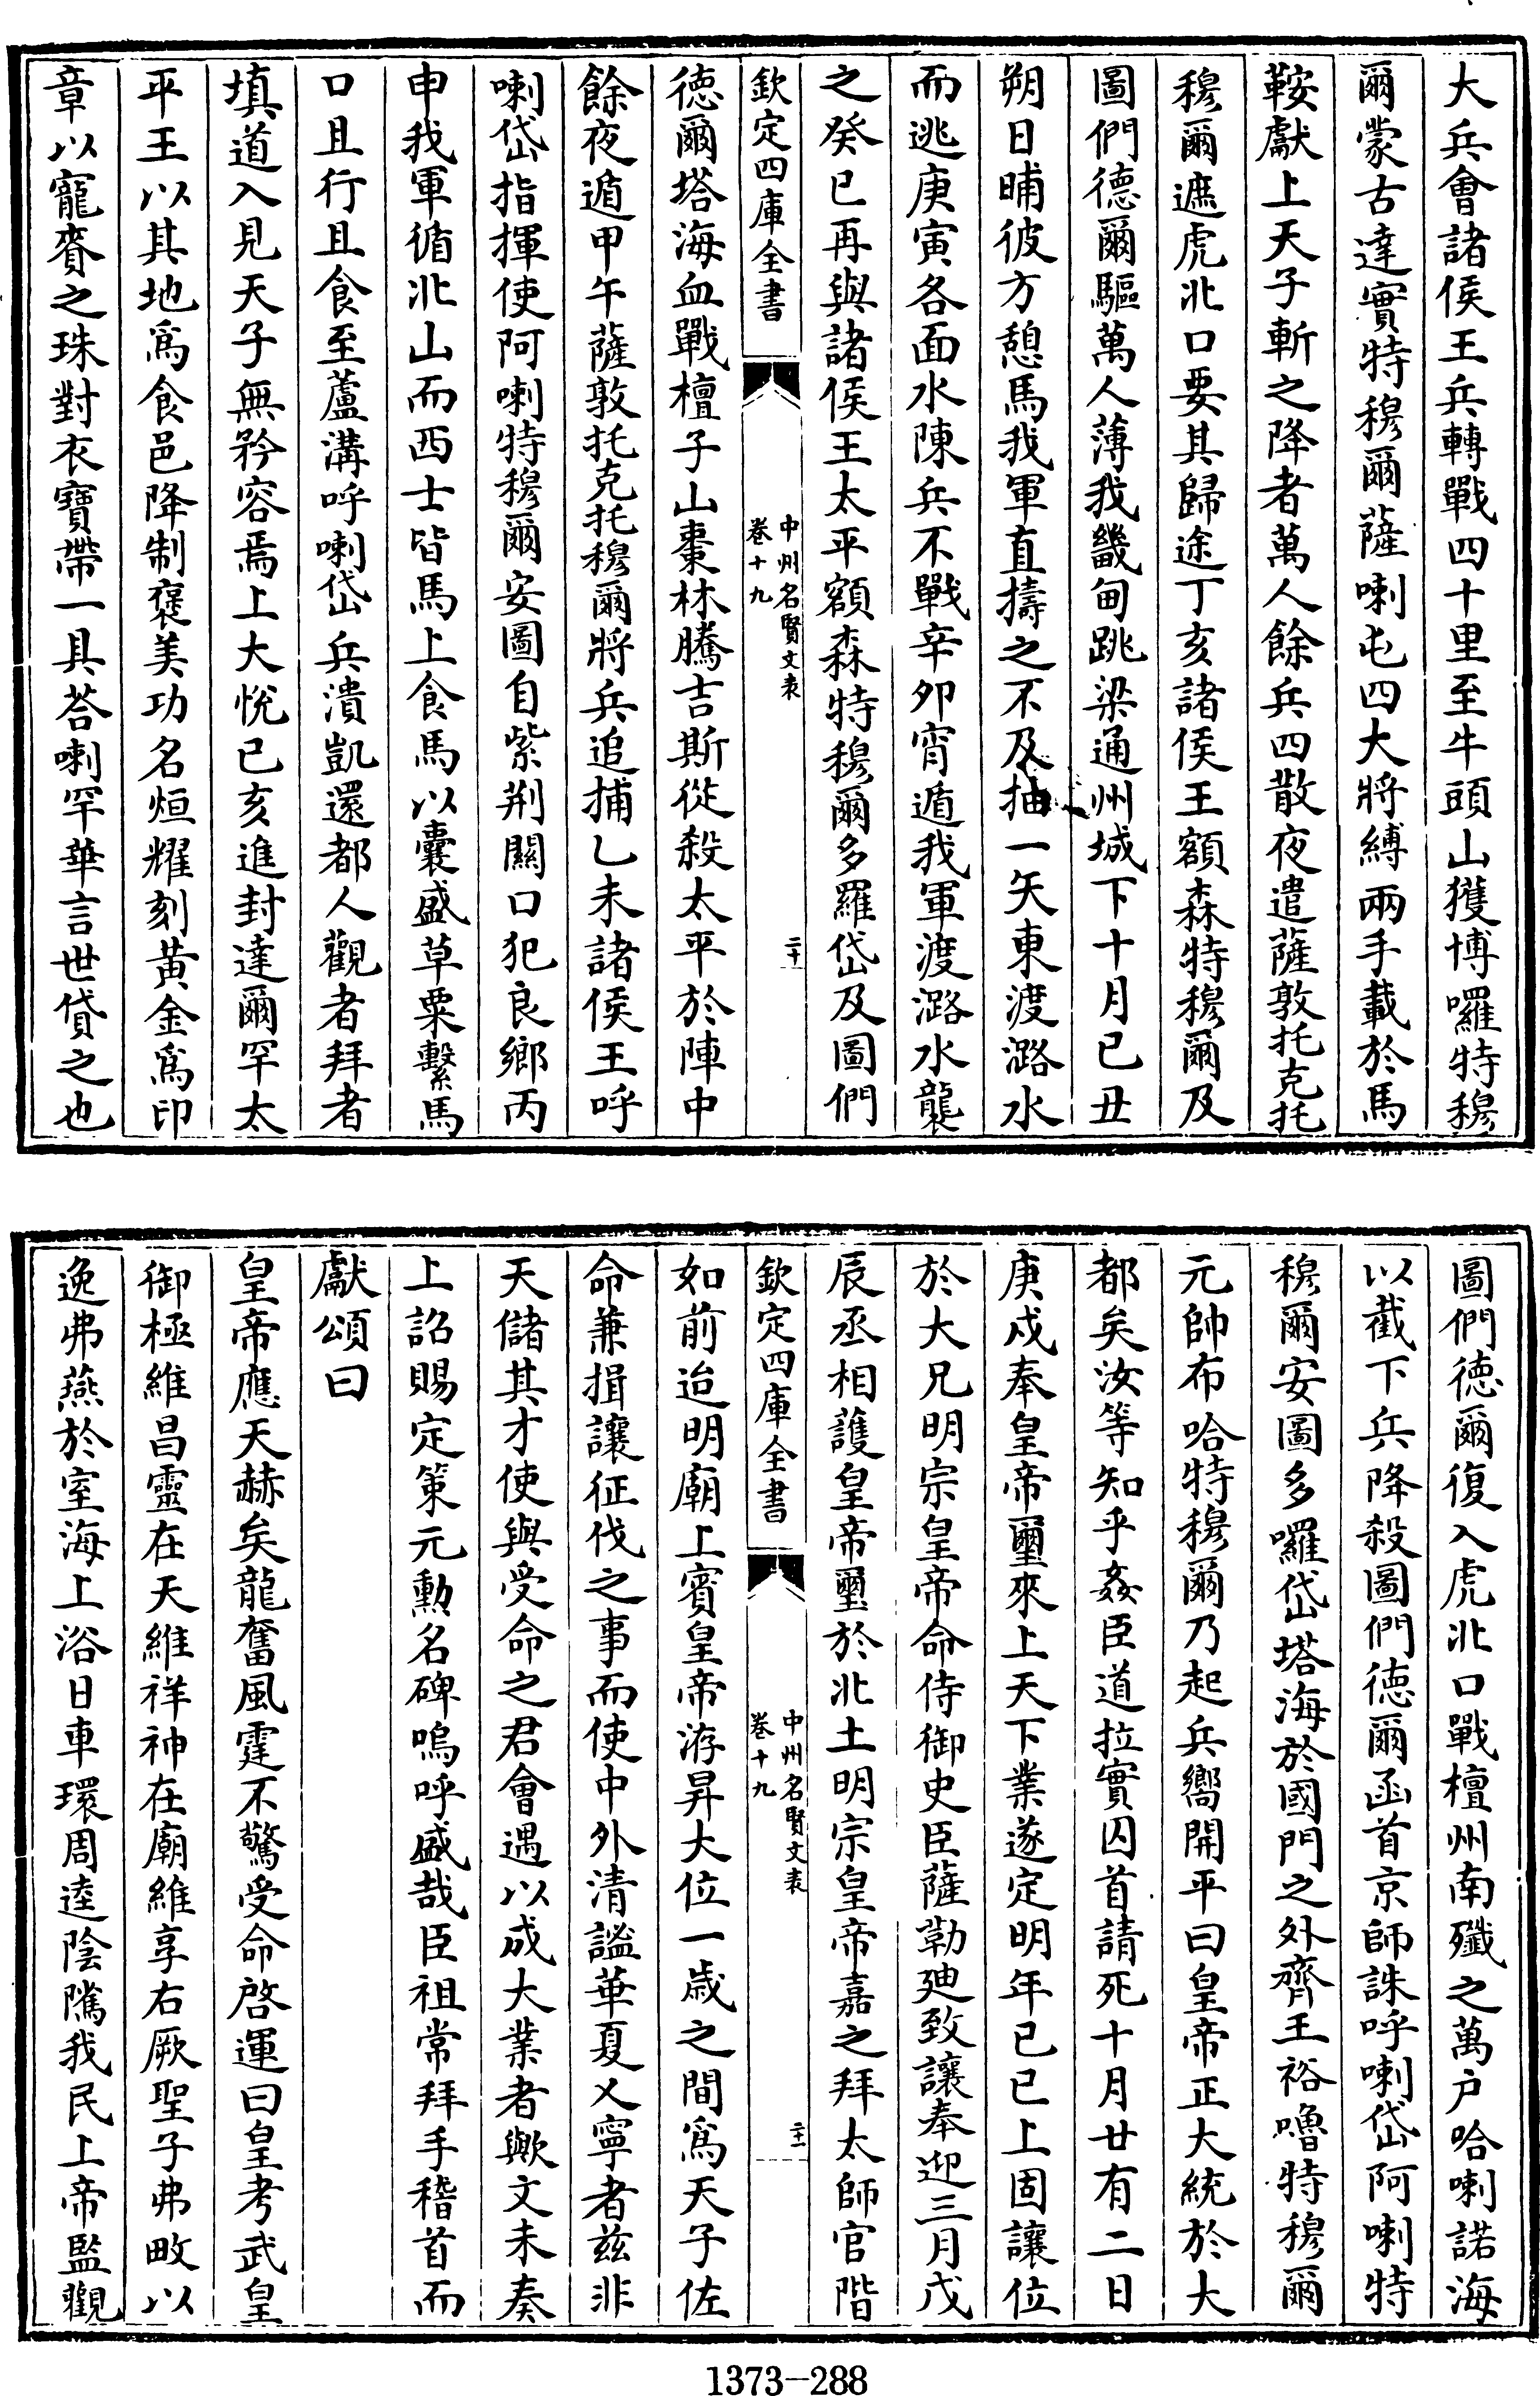 大兵會諸侯王兵轉戰四十里至牛頭山獲博囉特穆
爾蒙古達實特穆爾薩喇屯四大將縛兩手載於馬
鞍獻上天子斬之降者萬人餘兵四散夜遣薩敦托克托
穆爾遮虎北口要其歸途丁亥諸侯王額森特穆爾及
圖們德爾驅萬人薄我畿甸跳梁通州城下十月己丑
朔日晡彼方憩馬我軍直擣之不及抽一矢東渡潞水
而逃庚寅各面水陳兵不戰辛卯宵遁我軍渡潞水襲
之癸巳再與諸侯王太平額森特穆爾多羅岱及圖們
欽定四庫全書
中州名賢文表
卷十九
二十
德爾塔海血戰檀子山棗林騰吉斯從殺太平於陣中
餘夜遁甲午薩敦托克托穆爾將兵追捕乙未諸侯王呼
喇岱指揮使阿喇特穆爾安圖自紫荆關口犯良鄉丙
申我軍循北山而西士皆馬上食馬以囊盛草粟繫馬
口且行且食至蘆溝呼喇岱兵潰凱還都人觀者拜者
填道入見天子無矜容焉上大悅己亥進封達爾罕太
平王以其地爲食邑降制褒美功名烜耀刻黃金爲印
章以寵賚之珠對衣寶帶一具荅喇罕華言世貸之也
圖們德爾復入虎北口戰檀州南殲之萬戶哈喇諾海
以截下兵降殺圖們德爾函首京師誅呼喇岱阿喇特
穆爾安圖多囉岱塔海於國門之外齊王裕嚕特穆爾
元帥布哈特穆爾乃起兵嚮開平曰皇帝正大統於大
都矣汝等知乎姦臣道拉實囚首請死十月廿有二日
庚戍奉皇帝璽來上天下業遂定明年己巳上固讓位
於大兄明宗皇帝命侍御史臣薩勒廸致讓奉迎三月戊
辰丞相護皇帝璽於北土明宗皇帝嘉之拜太師官階
欽定四庫全書
中州名賢文表
卷十九
二十一
如前迨明廟上賓皇帝洊昇大位一歲之間爲天子佐
命兼揖讓征伐之事而使中外清謐華夏乂寧者兹非
天儲其才使與受命之君會遇以成大業者歟文未奏
上詔賜定策元勳名碑嗚呼盛哉臣祖常拜手稽首而
獻頌曰
皇帝應天赫矣龍奮風霆不驚受命啓運曰皇考武皇
御極維昌靈在天維祥神在廟維享右厥聖子弗畋以
逸弗燕於室海上浴日車環周逵陰隲我民上帝監觀
1373-288